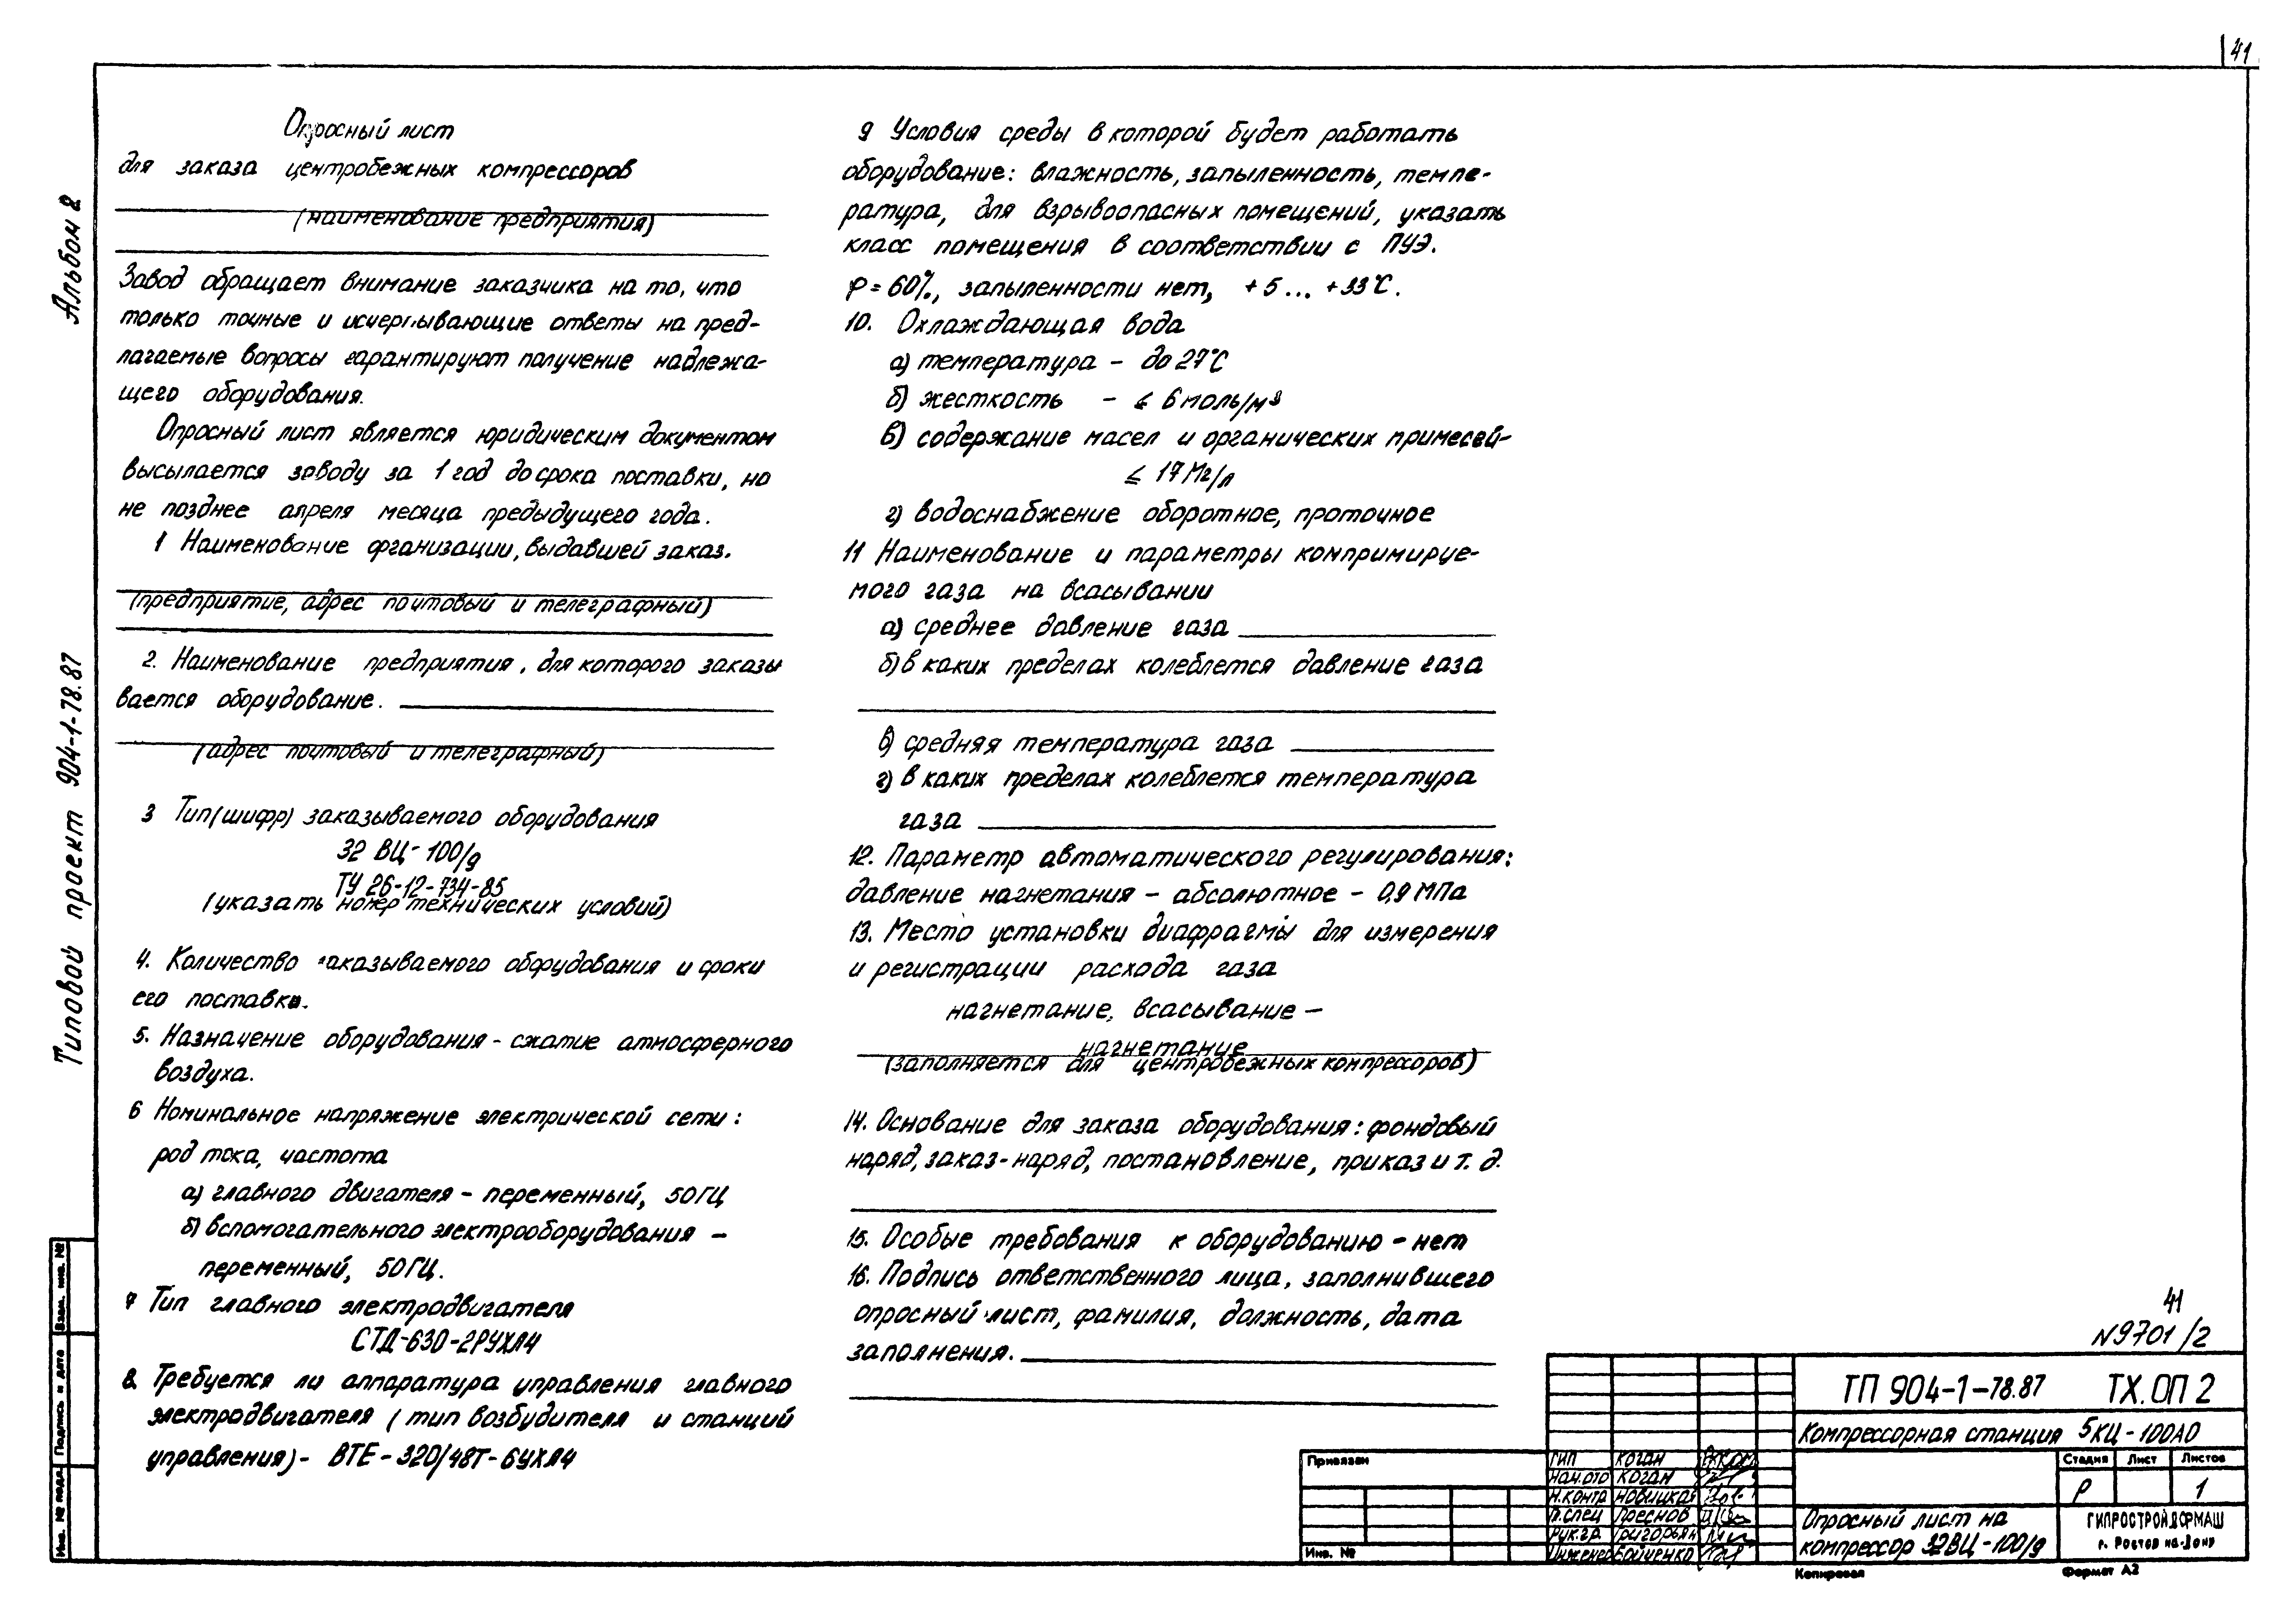 41
Опросный лист
для заказа центробежных компрессоров
(наименование предприятия)
Завод обращает внимание заказчика на то, что
только точные и исчерпывающие ответы на пред-
лагаемые вопросы гарантируют получение надлежа-
щего оборудования.
Опросный лист является юридическим документом
высылается заводу за 1 год до срока поставки, но
не позднее апреля месяца предыдущего года.
1 Наименование организации, выдавшей заказ.
(предприятие, адрес почтовый и телеграфный)
2. Наименование предприятия, для которого заказы
вается оборудование.
(адрес почтовый и телеграфный)
3 Тип (шифр) заказываемого оборудования
32 ВЦ-100/9
ТУ 26-12-734-85
(указать номер технических условий)
4. Количество заказываемого оборудования и сроки
его поставки.
5. Назначение оборудования - сжатие атмосферного
воздуха.
6 Номинальное напряжение электрической сети:
род тока, частота
а) главного двигателя - переменный, 50 ГЦ
б) вспомогательного электрооборудования -
переменный, 50 ГЦ.
7 Тип главного электродвигателя
СТД-630-2РУХЛ4
8. Требуется ли аппаратура управления главного
электродвигателя (тип возбудителя и станций
управления) - ВТЕ-320/48Т-6УХЛ4
9 Условия среды в которой будет работать
оборудование: влажность, запыленность, темпе-
ратура, для взрывоопасных помещений, указать
класс помещения в соответствии с ПУЭ.
φ=60%, запыленности нет, +5... +33°С.
10. Охлаждающая вода
а) температура - до 27°С
б) жесткость - ≤ 6 моль/м³
в) содержание масел и органических примесей-
≤ 17 Мг/л
г) водоснабжение оборотное, проточное
11 Наименование и параметры компримируе-
мого газа на всасывании
а) среднее давление газа
б) в каких пределах колеблется давление газа
в) средняя температура газа
г) в каких пределах колеблется температура
газа
12. Параметр автоматического регулирования:
давление нагнетания - абсолютное - 0,9 МПа
13. Место установки диафрагмы для измерения
и регистрации расхода газа
нагнетание, всасывание -
нагнетание
(заполняется для центробежных компрессоров)
14. Основание для заказа оборудования: фондовый
наряд, заказ-наряд, постановление, приказ и т. д.
15. Особые требования к оборудованию - нет
16. Подпись ответственного лица, заполнившего
опросный лист, фамилия, должность, дата
заполнения.
Альбом 2
Типовой проект 904-1-78.87
Взам. инв. №
Подпись и дата
Инв. № подл.
41
N9701/2
ТП 904-1-78.87 ТХ.ОП 2
Компрессорная станция 5КЦ-100А0
Стадия Лист Листов
Р 1
Опросный лист на
компрессор 32ВЦ-100/9
ГИПРОСТРОЙДОРМАШ
г. Ростов на-Дону
Привязан
Инв. №
ГИП Коган
Нач.отд Коган
Н.контр Новицкая
Гл.спец Преснов
Рук.гр. Григорьян
Инженер Бойченко
Копировал
Формат А2